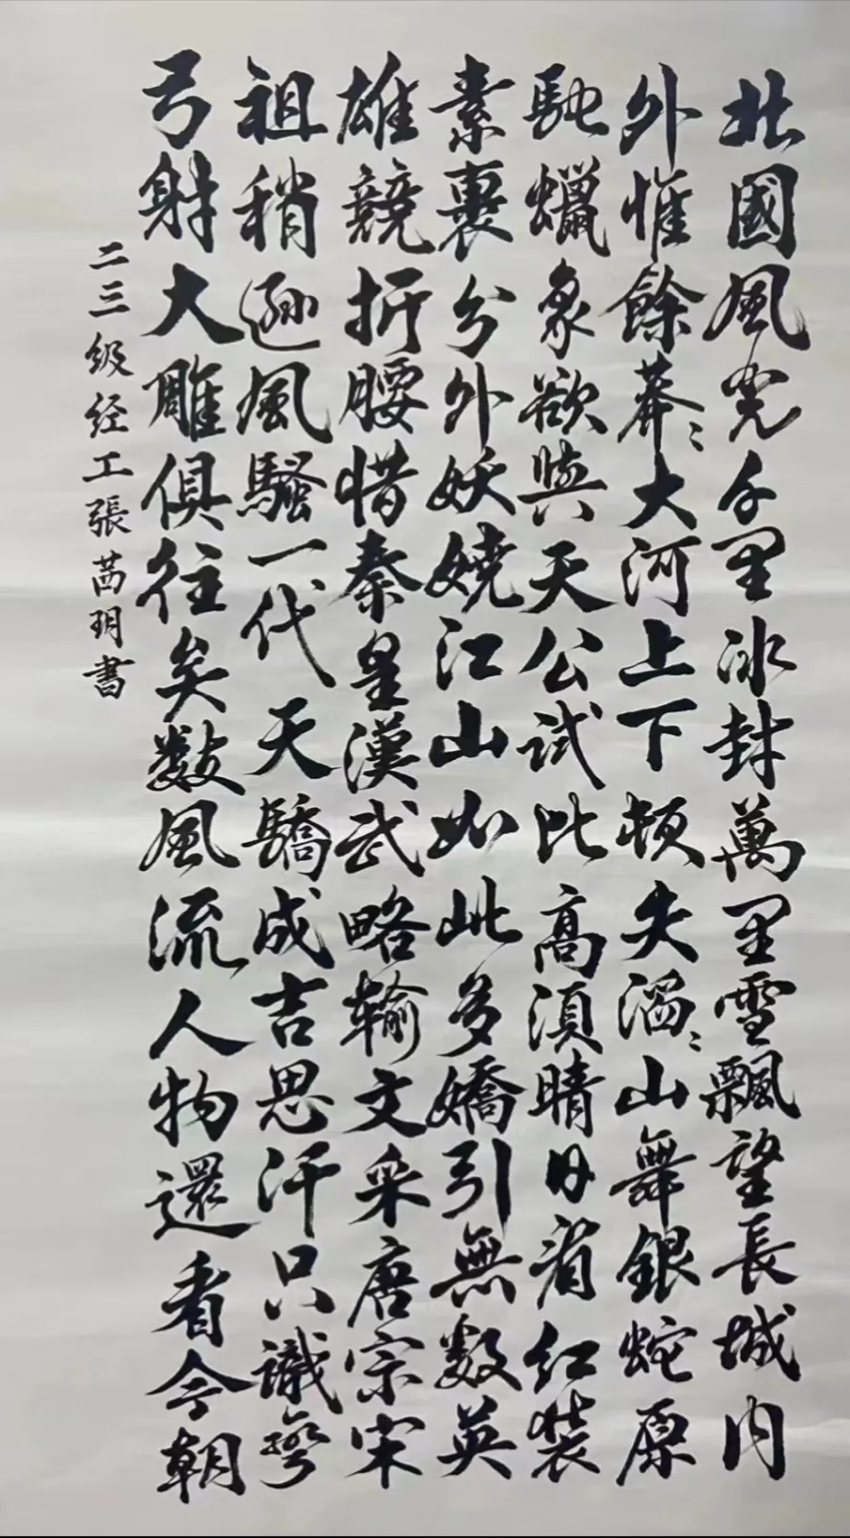 北國風光千里冰封萬里雪飄望長城內
外惟餘莽〻大河上下頓失滔〻山舞銀蛇原
馳蠟象欲與天公試比高須晴日看紅裝
素裹兮外妖嬈江山如此多嬌引無數英
雄競折腰惜秦皇漢武略輸文采唐宗宋
祖稍遜風騷一代天驕成吉思汗只識彎
弓射大雕俱往矣數風流人物還看今朝
二三級经工張茜玥書